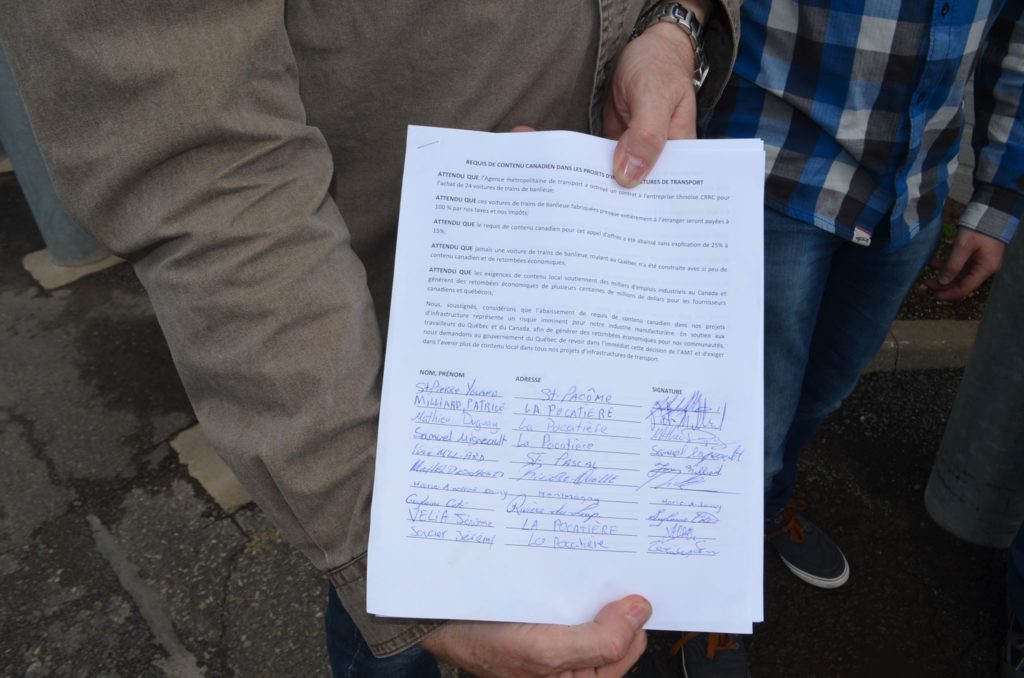 REQUIS DE CONTENU CANADIEN DANS LES PROJETS D'I RUCTURES DE TRANSPORT
ATTENDU QUE l'Agence métropolitaine de transport a octroyé un contrat à l'entreprise chinoise CRRC pour
l'achat de 24 voitures de trains de banlieue;
ATTENDU QUE ces voitures de trains de banlieue fabriquées presque entièrement à l'étranger seront payées à
100 % par nos taxes et nos impôts;
ATTENDU QUE le requis de contenu canadien pour cet appel d'offres a été abaissé sans explication de 25% à
15%;
ATTENDU QUE jamais une voiture de trains de banlieue roulant au Québec n'a été construite avec si peu de
contenu canadien et de retombées économiques;
ATTENDU QUE les exigences de contenu local soutiennent des milliers d'emplois industriels au Canada et
génèrent des retombées économiques de plusieurs centaines de millions de dollars pour les fournisseurs
canadiens et québécois;
Nous, soussignés, considérons que l'abaissement de requis de contenu canadien dans nos projets
d'infrastructure représente un risque imminent pour notre industrie manufacturière. En soutien aux
travailleurs du Québec et du Canada, afin de générer des retombées économiques pour nos communautés,
nous demandons au gouvernement du Québec de revoir dans l'immédiat cette décision de l'AMT et d'exiger
dans l'avenir plus de contenu local dans tous nos projets d'infrastructures de transport.
NOM, PRÉNOM ADRESSE SIGNATURE
St-Pierre St-PACÔME
MILLIARD, PATRICE LA POCATIÈRE
Mathieu Duguay La Pocatière
Samuel Migneault La Pocatière Samuel Migneault
MILLIARD ST PASCAL
Rivière Ouelle
Marie Andrée Montmagny
Côté Rivière du Loup
VELIA Jérôme LA POCATIÈRE
Saucier Jérémi La Pocatière